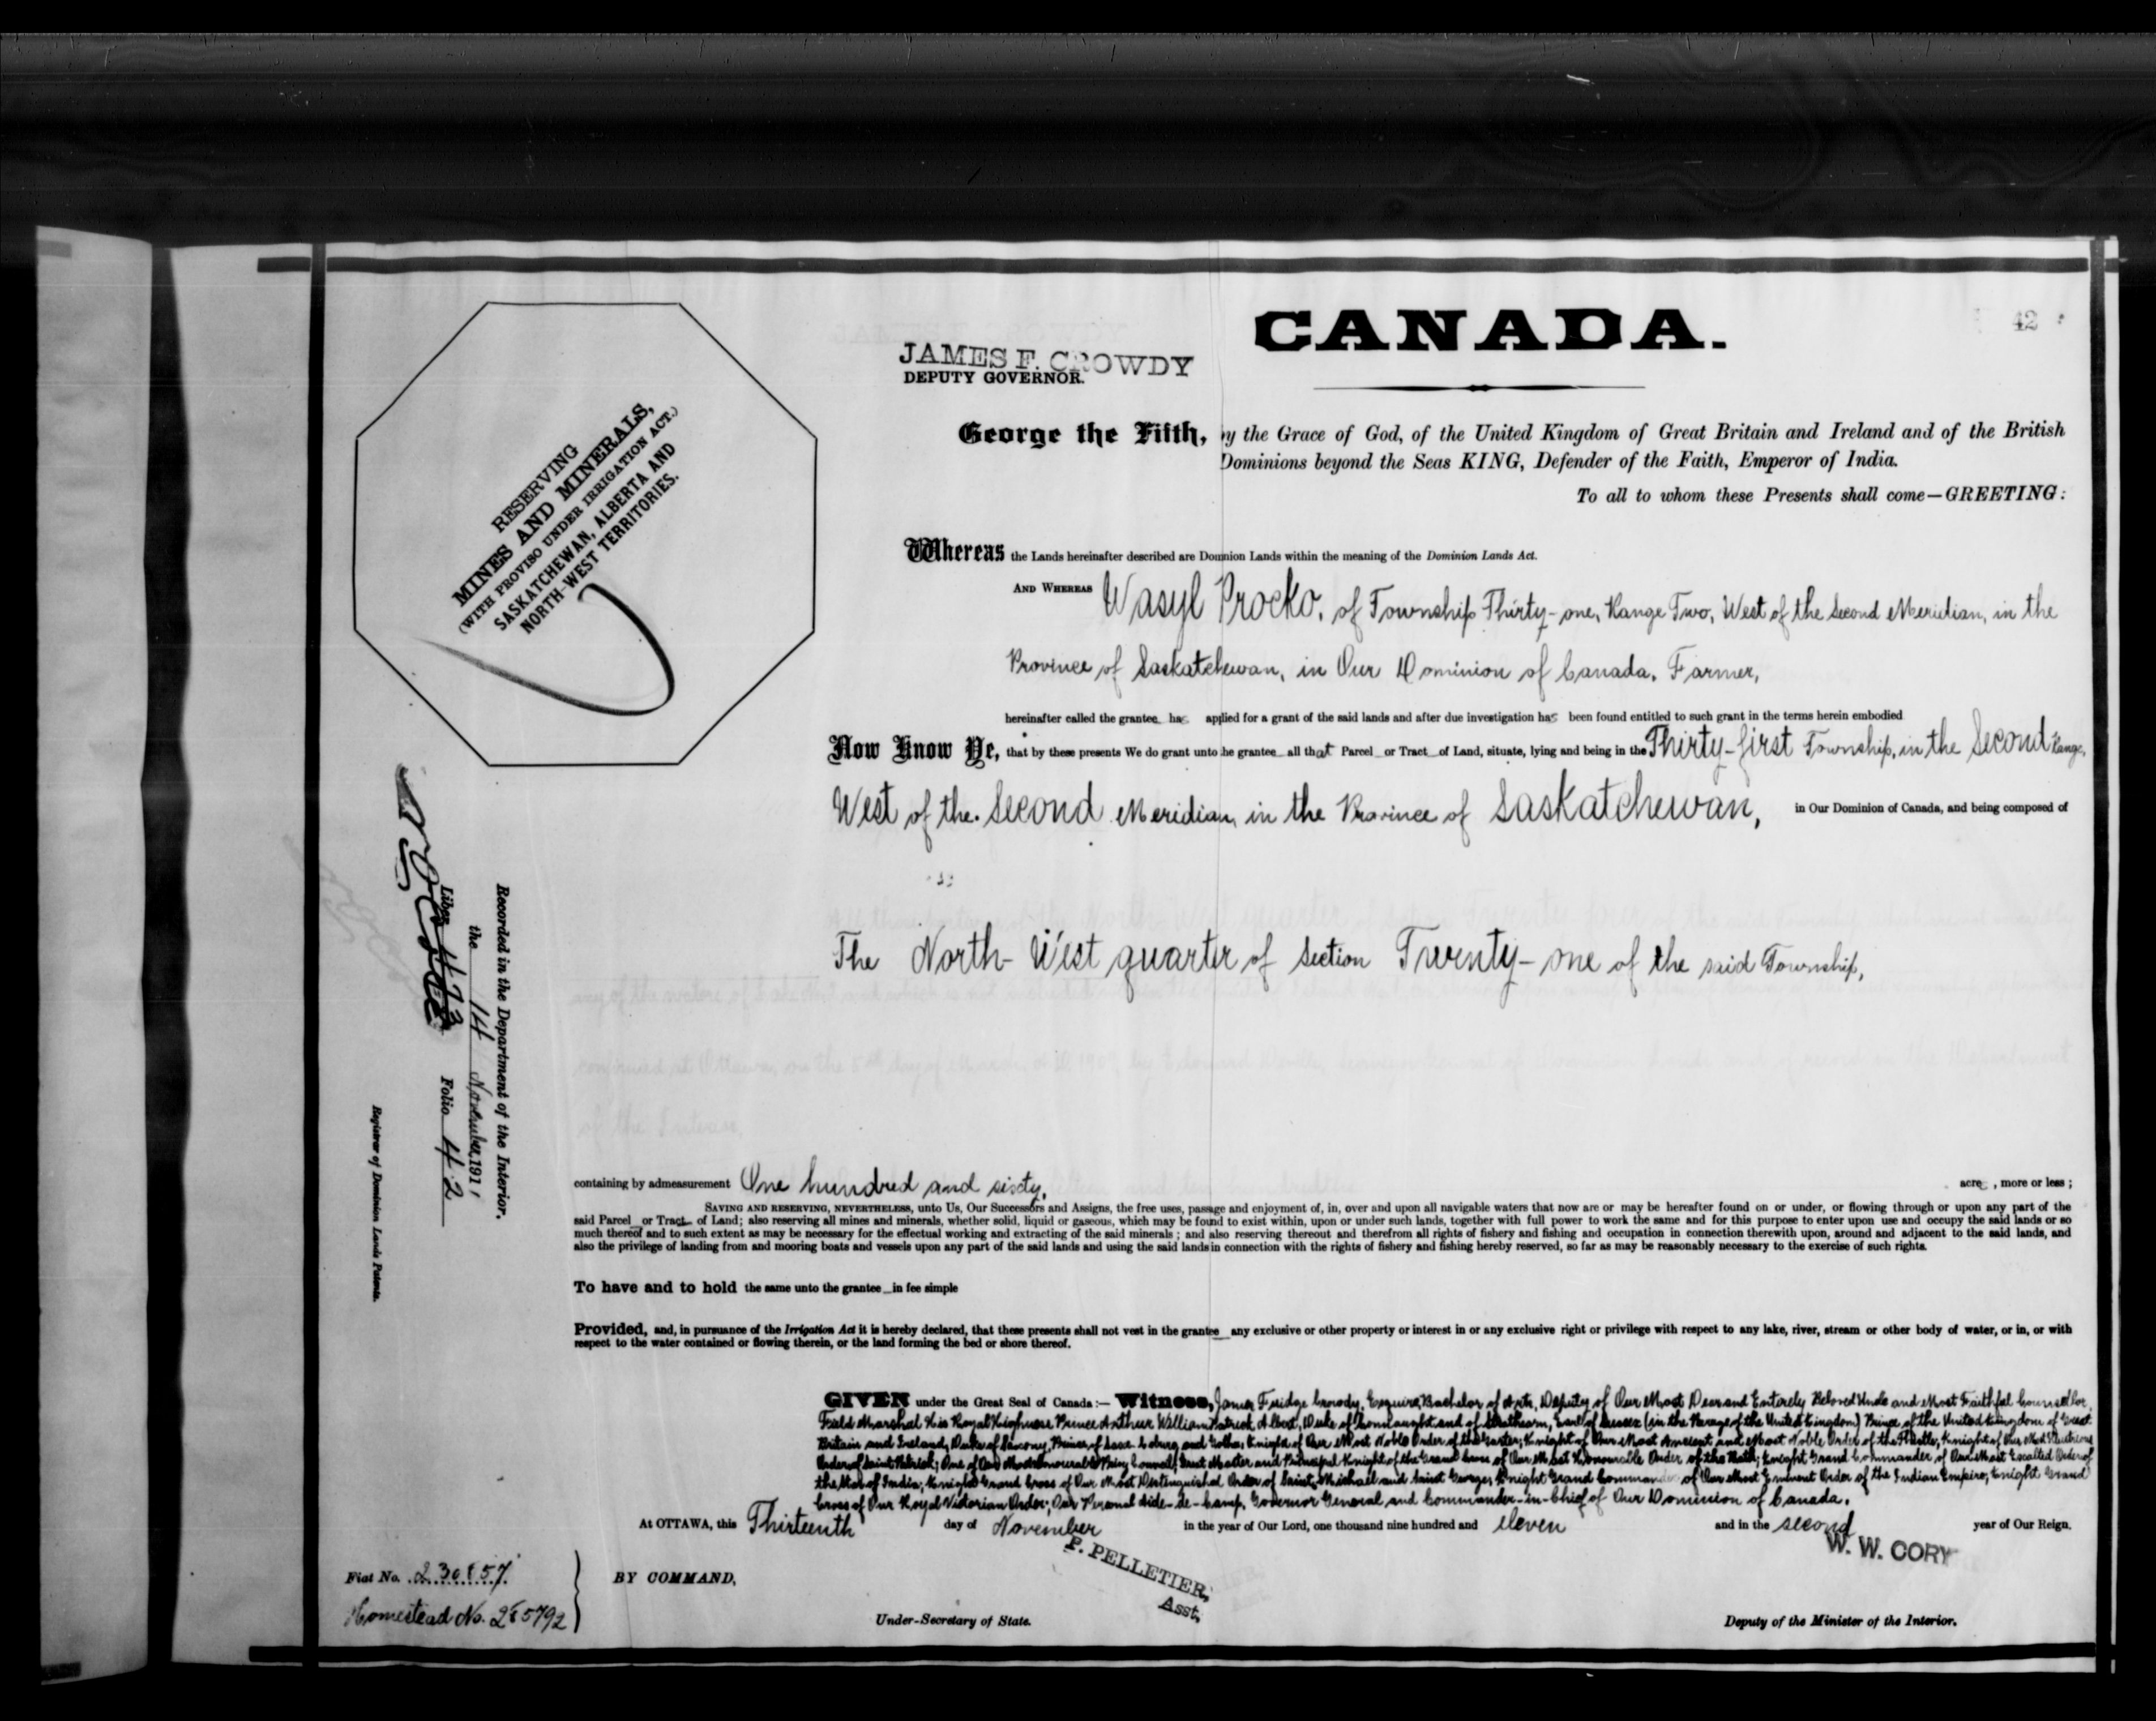 CANADA.
42
JAMES F. CROWDY
DEPUTY GOVERNOR.
George the Fifth, by the Grace of God, of the United Kingdom of Great Britain and Ireland and of the British
Dominions beyond the Seas KING, Defender of the Faith, Emperor of India.
To all to whom these Presents shall come—GREETING:
RESERVING
MINES AND MINERALS,
(WITH PROVISO UNDER IRRIGATION ACT.)
SASKATCHEWAN, ALBERTA AND
NORTH-WEST TERRITORIES.
Whereas the Lands hereinafter described are Dominion Lands within the meaning of the Dominion Lands Act.
AND WHEREAS Wasyl Procko, of Township Thirty-one, Range Two, West of the Second Meridian, in the
Province of Saskatchewan, in Our Dominion of Canada, Farmer,
hereinafter called the grantee has applied for a grant of the said lands and after due investigation has been found entitled to such grant in the terms herein embodied
Now Know Ye, that by these presents We do grant unto the grantee all that Parcel or Tract of Land, situate, lying and being in the Thirty-first Township, in the Second Range,
West of the Second Meridian, in the Province of Saskatchewan, in Our Dominion of Canada, and being composed of
The North-West quarter of Section Twenty-one of the said Township,
containing by admeasurement One hundred and sixty, acres, more or less;
SAVING AND RESERVING, NEVERTHELESS, unto Us, Our Successors and Assigns, the free uses, passage and enjoyment of, in, over and upon all navigable waters that now are or may be hereafter found on or under, or flowing through or upon any part of the
said Parcel or Tract of Land; also reserving all mines and minerals, whether solid, liquid or gaseous, which may be found to exist within, upon or under such lands, together with full power to work the same and for this purpose to enter upon use and occupy the said lands or so
much thereof and to such extent as may be necessary for the effectual working and extracting of the said minerals; and also reserving thereout and therefrom all rights of fishery and fishing and occupation in connection therewith upon, around and adjacent to the said lands, and
also the privilege of landing from and mooring boats and vessels upon any part of the said lands and using the said lands in connection with the rights of fishery and fishing hereby reserved, so far as may be reasonably necessary to the exercise of such rights.
To have and to hold the same unto the grantee in fee simple
Provided, and, in pursuance of the Irrigation Act it is hereby declared, that these presents shall not vest in the grantee any exclusive or other property or interest in or any exclusive right or privilege with respect to any lake, river, stream or other body of water, or in, or with
respect to the water contained or flowing therein, or the land forming the bed or shore thereof.
GIVEN under the Great Seal of Canada:— Witness, James Fridge Crowdy, Esquire, Bachelor of Arts, Deputy of Our Most Dear and Entirely Beloved Uncle and Most Faithful Counsellor,
Field Marshal His Royal Highness Prince Arthur William Patrick Albert, Duke of Connaught and of Strathearn, Earl of Sussex (in the Peerage of the United Kingdom) Prince of the United Kingdom of Great
Britain and Ireland, Duke of Saxony, Prince of Saxe-Coburg and Gotha; Knight of Our Most Noble Order of the Garter; Knight of Our Most Ancient and Most Noble Order of the Thistle; Knight of Our Most Illustrious
Order of Saint Patrick; One of Our Most Honourable Privy Council; Great Master and Principal Knight of the Grand Cross of Our Most Honourable Order of the Bath; Knight Grand Commander of Our Most Exalted Order of
the Star of India; Knight Grand Cross of Our Most Distinguished Order of Saint Michael and Saint George; Knight Grand Commander of Our Most Eminent Order of the Indian Empire; Knight Grand
Cross of Our Royal Victorian Order; Our Personal Aide-de-Camp, Governor General and Commander-in-Chief of Our Dominion of Canada.
At OTTAWA, this Thirteenth day of November in the year of Our Lord, one thousand nine hundred and eleven and in the second year of Our Reign.
W. W. CORY
P. PELLETIER,
Asst,
BY COMMAND,
Under-Secretary of State.
Deputy of the Minister of the Interior.
Fiat No. 230857
Homestead No. 285792
Recorded in the Department of the Interior.
the 14 November, 1911
Liber 423 Folio 42
Registrar of Dominion Lands Patents.